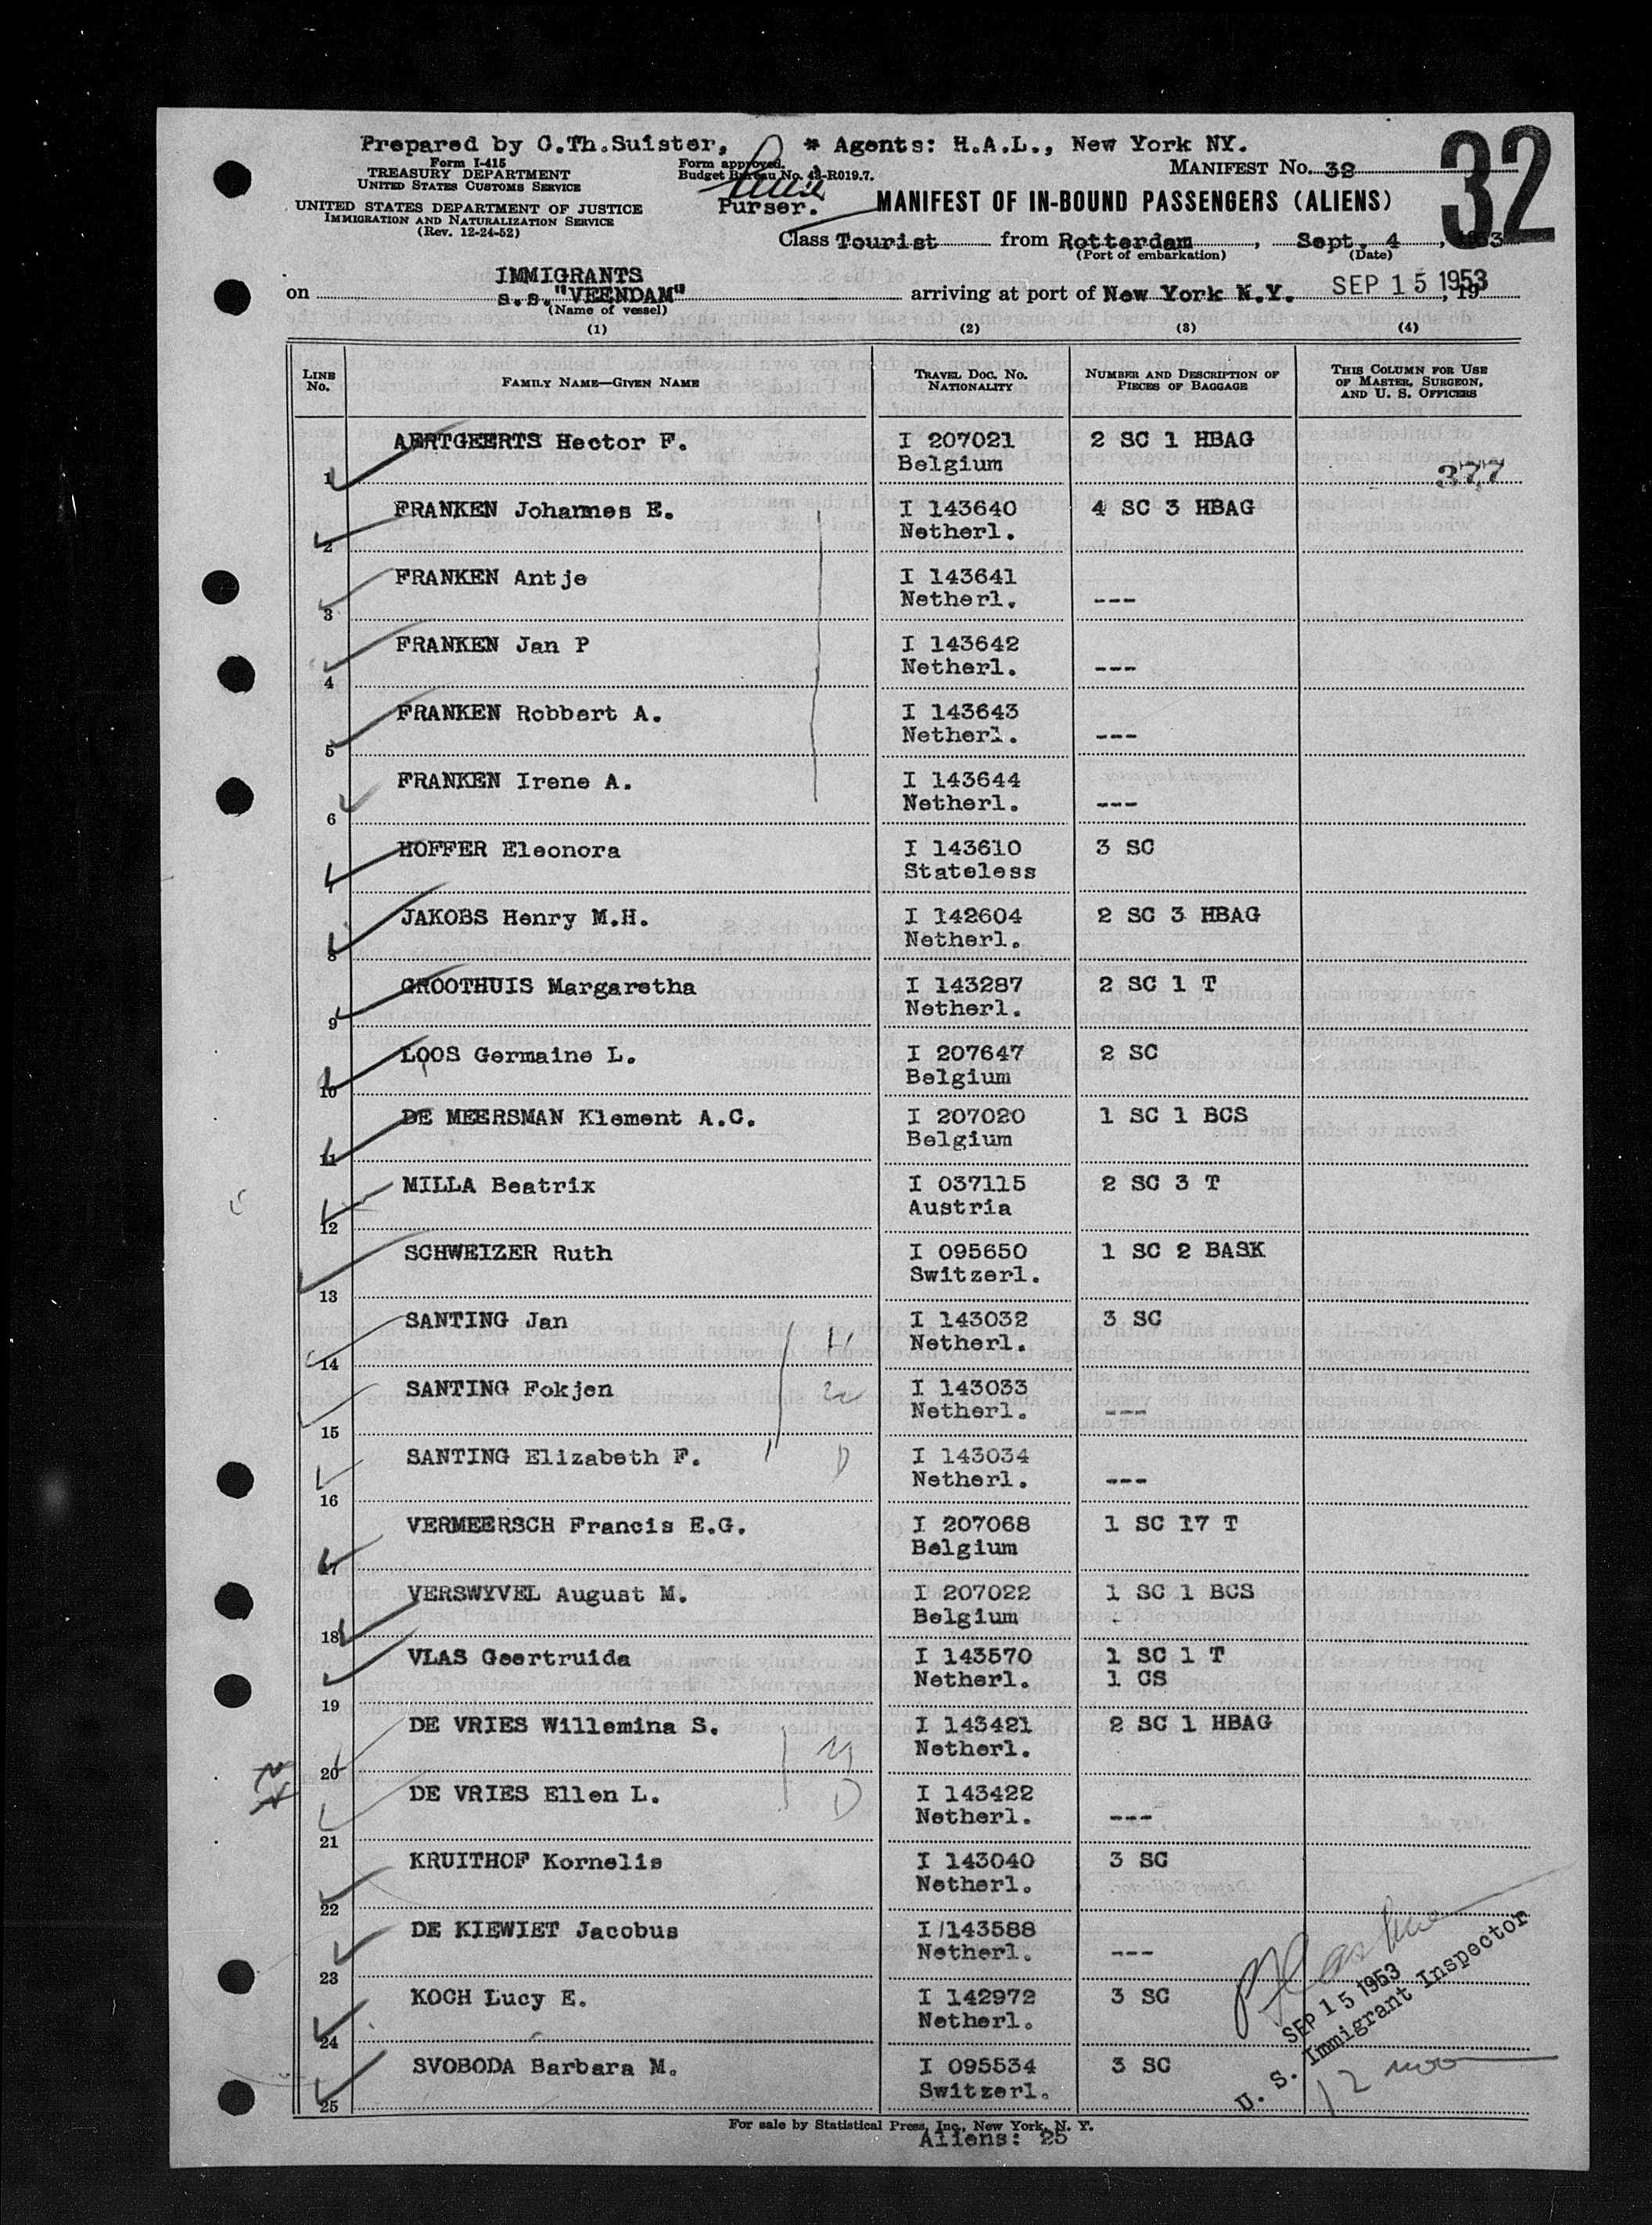 Prepared by C.Th.Suister, * Agents: H.A.L., New York NY.
Form I-415
TREASURY DEPARTMENT
UNITED STATES CUSTOMS SERVICE
Form approved.
Budget Bureau No. 43-R019.7.
MANIFEST NO. 32
32
UNITED STATES DEPARTMENT OF JUSTICE
IMMIGRATION AND NATURALIZATION SERVICE
(Rev. 12-24-52)
Purser.
MANIFEST OF IN-BOUND PASSENGERS (ALIENS)
Class Tourist from Rotterdam, Sept. 4, 1953
(Port of embarkation) (Date)
IMMIGRANTS
on s.s."VEENDAM" arriving at port of New York N.Y. SEP 15 1953, 19
(Name of vessel)
(1) (2) (3) (4)
LINE NO. FAMILY NAME—GIVEN NAME TRAVEL DOC. NO. NATIONALITY NUMBER AND DESCRIPTION OF PIECES OF BAGGAGE THIS COLUMN FOR USE OF MASTER, SURGEON, AND U. S. OFFICERS
AERTGEERTS Hector F. I 207021 2 SC 1 HBAG
1 Belgium 377
FRANKEN Johannes E. I 143640 4 SC 3 HBAG
2 Netherl.
FRANKEN Antje I 143641
3 Netherl. ---
FRANKEN Jan P I 143642
4 Netherl. ---
FRANKEN Robbert A. I 143643
5 Netherl. ---
FRANKEN Irene A. I 143644
6 Netherl. ---
HOFFER Eleonora I 143610 3 SC
7 Stateless
JAKOBS Henry M.H. I 142604 2 SC 3 HBAG
8 Netherl.
GROOTHUIS Margaretha I 143287 2 SC 1 T
9 Netherl.
LOOS Germaine L. I 207647 2 SC
10 Belgium
DE MEERSMAN Klement A.C. I 207020 1 SC 1 BCS
11 Belgium
MILLA Beatrix I 037115 2 SC 3 T
12 Austria
SCHWEIZER Ruth I 095650 1 SC 2 BASK
13 Switzerl.
SANTING Jan I 143032 3 SC
14 Netherl.
SANTING Fokjen I 143033
15 Netherl. ---
SANTING Elizabeth F. D I 143034
16 Netherl. ---
VERMEERSCH Francis E.G. I 207068 1 SC 17 T
17 Belgium
VERSWYVEL August M. I 207022 1 SC 1 BCS
18 Belgium
VLAS Geertruida I 143570 1 SC 1 T
19 Netherl. 1 CS
DE VRIES Willemina S. I 143421 2 SC 1 HBAG
20 Netherl.
DE VRIES Ellen L. D I 143422
21 Netherl. ---
KRUITHOF Kornelis I 143040 3 SC
22 Netherl.
DE KIEWIET Jacobus I 143588
23 Netherl. ---
KOCH Lucy E. I 142972 3 SC
24 Netherl.
SVOBODA Barbara M. I 095534 3 SC
25 Switzerl.
SEP 15 1953
U. S. Immigrant Inspector
12 noon
For sale by Statistical Press, Inc., New York, N. Y.
Aliens: 25